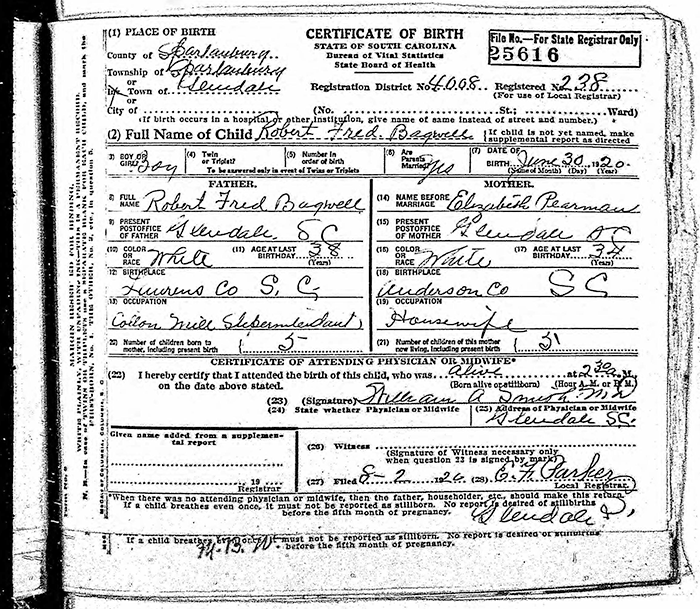 (1) PLACE OF BIRTH
County of Spartanburg
Township of Spartanburg
or
Inc. Town of Glendale
or
City of
CERTIFICATE OF BIRTH
STATE OF SOUTH CAROLINA
Bureau of Vital Statistics
State Board of Health
File No.—For State Registrar Only
25616
Registration District No. 4008 Registered No. 238
(For use of Local Registrar)
(No. St.; Ward)
(If birth occurs in a hospital or other institution, give name of same instead of street and number.)
(2) Full Name of Child Robert Fred Bagwell
If child is not yet named, make supplemental report as directed
3) BOY OR GIRL? Boy
(4) Twin or Triplet?
(5) Number in order of birth
To be answered only in event of Twins or Triplets
(6) Are Parents Married? Yes
(7) DATE OF BIRTH June 30, 1920
(Name of Month) (Day) (Year)
FATHER.
8) FULL NAME Robert Fred Bagwell
9) PRESENT POSTOFFICE OF FATHER Glendale SC
(10) COLOR OR RACE White
(11) AGE AT LAST BIRTHDAY 38
(Years)
12) BIRTHPLACE
Laurens Co S. C.
13) OCCUPATION
Cotton Mill Superintendant
20) Number of children born to mother, including present birth 5
MOTHER.
(14) NAME BEFORE MARRIAGE Elizabeth Pearman
(15) PRESENT POSTOFFICE OF MOTHER Glendale SC
(16) COLOR OR RACE White
(17) AGE AT LAST BIRTHDAY 34
(Years)
(18) BIRTHPLACE
Anderson Co SC
(19) OCCUPATION
Housewife
(21) Number of children of this mother now living, including present birth 5
CERTIFICATE OF ATTENDING PHYSICIAN OR MIDWIFE*
(22) I hereby certify that I attended the birth of this child, who was Alive at 2 30 a M.,
on the date above stated. (Born alive or stillborn) (Hour A. M. or P. M.)
(23) (Signature) William A Smith M.D.
(24) State whether Physician or Midwife (25) Address of Physician or Midwife
Glendale SC.
Given name added from a supplemental report
19
Registrar
(26) Witness
(Signature of Witness necessary only when question 23 is signed by mark)
(27) Filed 8-2 1920 (28) E. H. Parker
Local Registrar.
*When there was no attending physician or midwife, then the father, householder, etc., should make this return.
If a child breathes even once, it must not be reported as stillborn. No report is desired of stillbirths
before the fifth month of pregnancy.
Glendale
If a child breathes even once, it must not be reported as stillborn. No report is desired of stillbirths
before the fifth month of pregnancy.